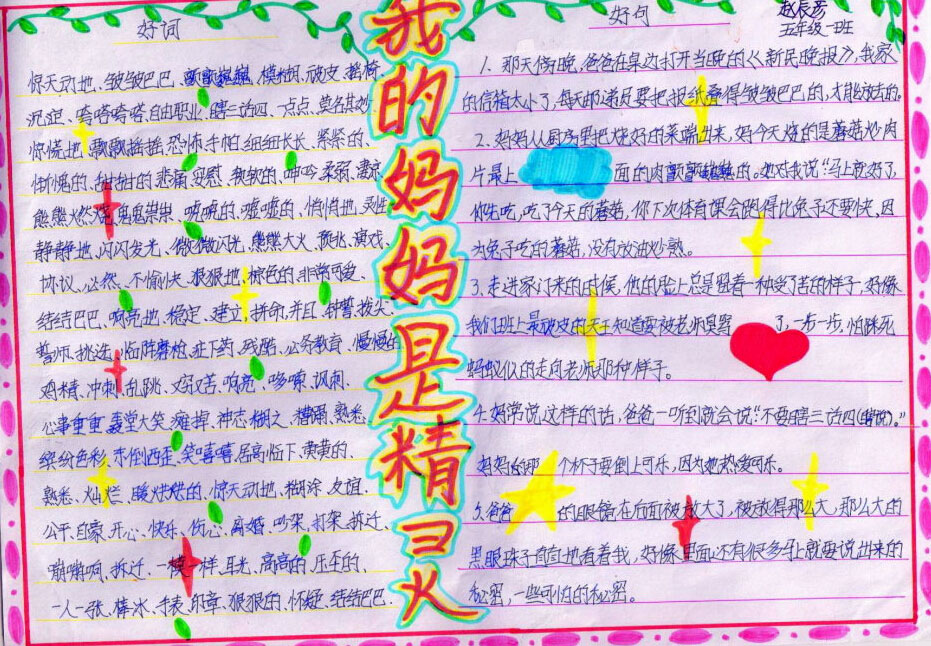 好词
惊天动地、皱皱巴巴、颤颤巍巍、模糊、顽皮、摇椅、
沉淀、嗒嗒嗒嗒、自由职业、瞎三话四、一点点、莫名其妙、
惊慌地、飘飘摇摇、恐怖、手帕、细细长长、紧紧的、
惭愧的、甜甜的、悲痛、安慰、软软的、呻吟、柔弱、凄凉、
熊熊燃烧、鬼鬼祟祟、嘘嘘的、悄悄地、灵性
静静地、闪闪发光、微微闪光、熊熊大火、预兆、演戏、
协议、必然、不愉快、狠狠地、棕色的、非常可爱、
结结巴巴、响亮地、稳定、建立、拼命、并且、钟警、拨头、
誓师、挑选、临阵磨枪、症下药、残酷、义务教育、慢慢的
鸡精、冲刺、乱跳、欢笑、响亮、哆嗦、讽刺、
心事重重、哄堂大笑、瘫掉、神志糊之、糟蹋、熟悉、
缤纷色彩、东倒西歪、笑嘻嘻、居高临下、黄黄的、
熟悉、灿烂、暖烘烘的、惊天动地、糊涂、友谊、
公平、自豪、开心、快乐、伤心、离婚、吵架、打架、拆迁、
嘣嘣响、拆迁、一模一样、耳光、高高的、乐乐的、
一人一张、棒冰、手表、印章、狠狠的、怀疑、结结巴巴、
我的妈妈是精灵
好句
赵辰彦
五年级一班
1. 那天傍晚,爸爸在桌边打开当晚的《新民晚报》,我家
的信箱太小了,每天邮递员要把报纸叠得皱皱巴巴的,才能放去的。
2. 妈妈从厨房里把烧好的菜端出来,妈今天烧的是蘑菇炒肉
片,最上面的肉颤颤巍巍的。她对我说“马上就好了,
你先吃,吃了今天的蘑菇,你下次体育课会跑得比兔子还要快,因
为兔子吃的蘑菇,没有放油炒熟。
3. 走进家门来的时候,他的脸上总是留着一种受了苦的样子,好像
我们班上最顽皮的天子知道要被老师臭骂了,一步一步,怕踩死
蚂蚁似的走向老师那种样子。
4. 妈常说这样的话,爸爸一听到就会说“不要瞎三话四(瞎说)。”
妈妈的那一个杯子要倒上可乐,因为她热爱可乐。
5. 爸爸的眼镜在后面被放大了,被放得那么大,那么大的
黑眼珠子直直地看着我,好像里面还有很多马上就要说出来的
秘密,一些可怕的秘密。